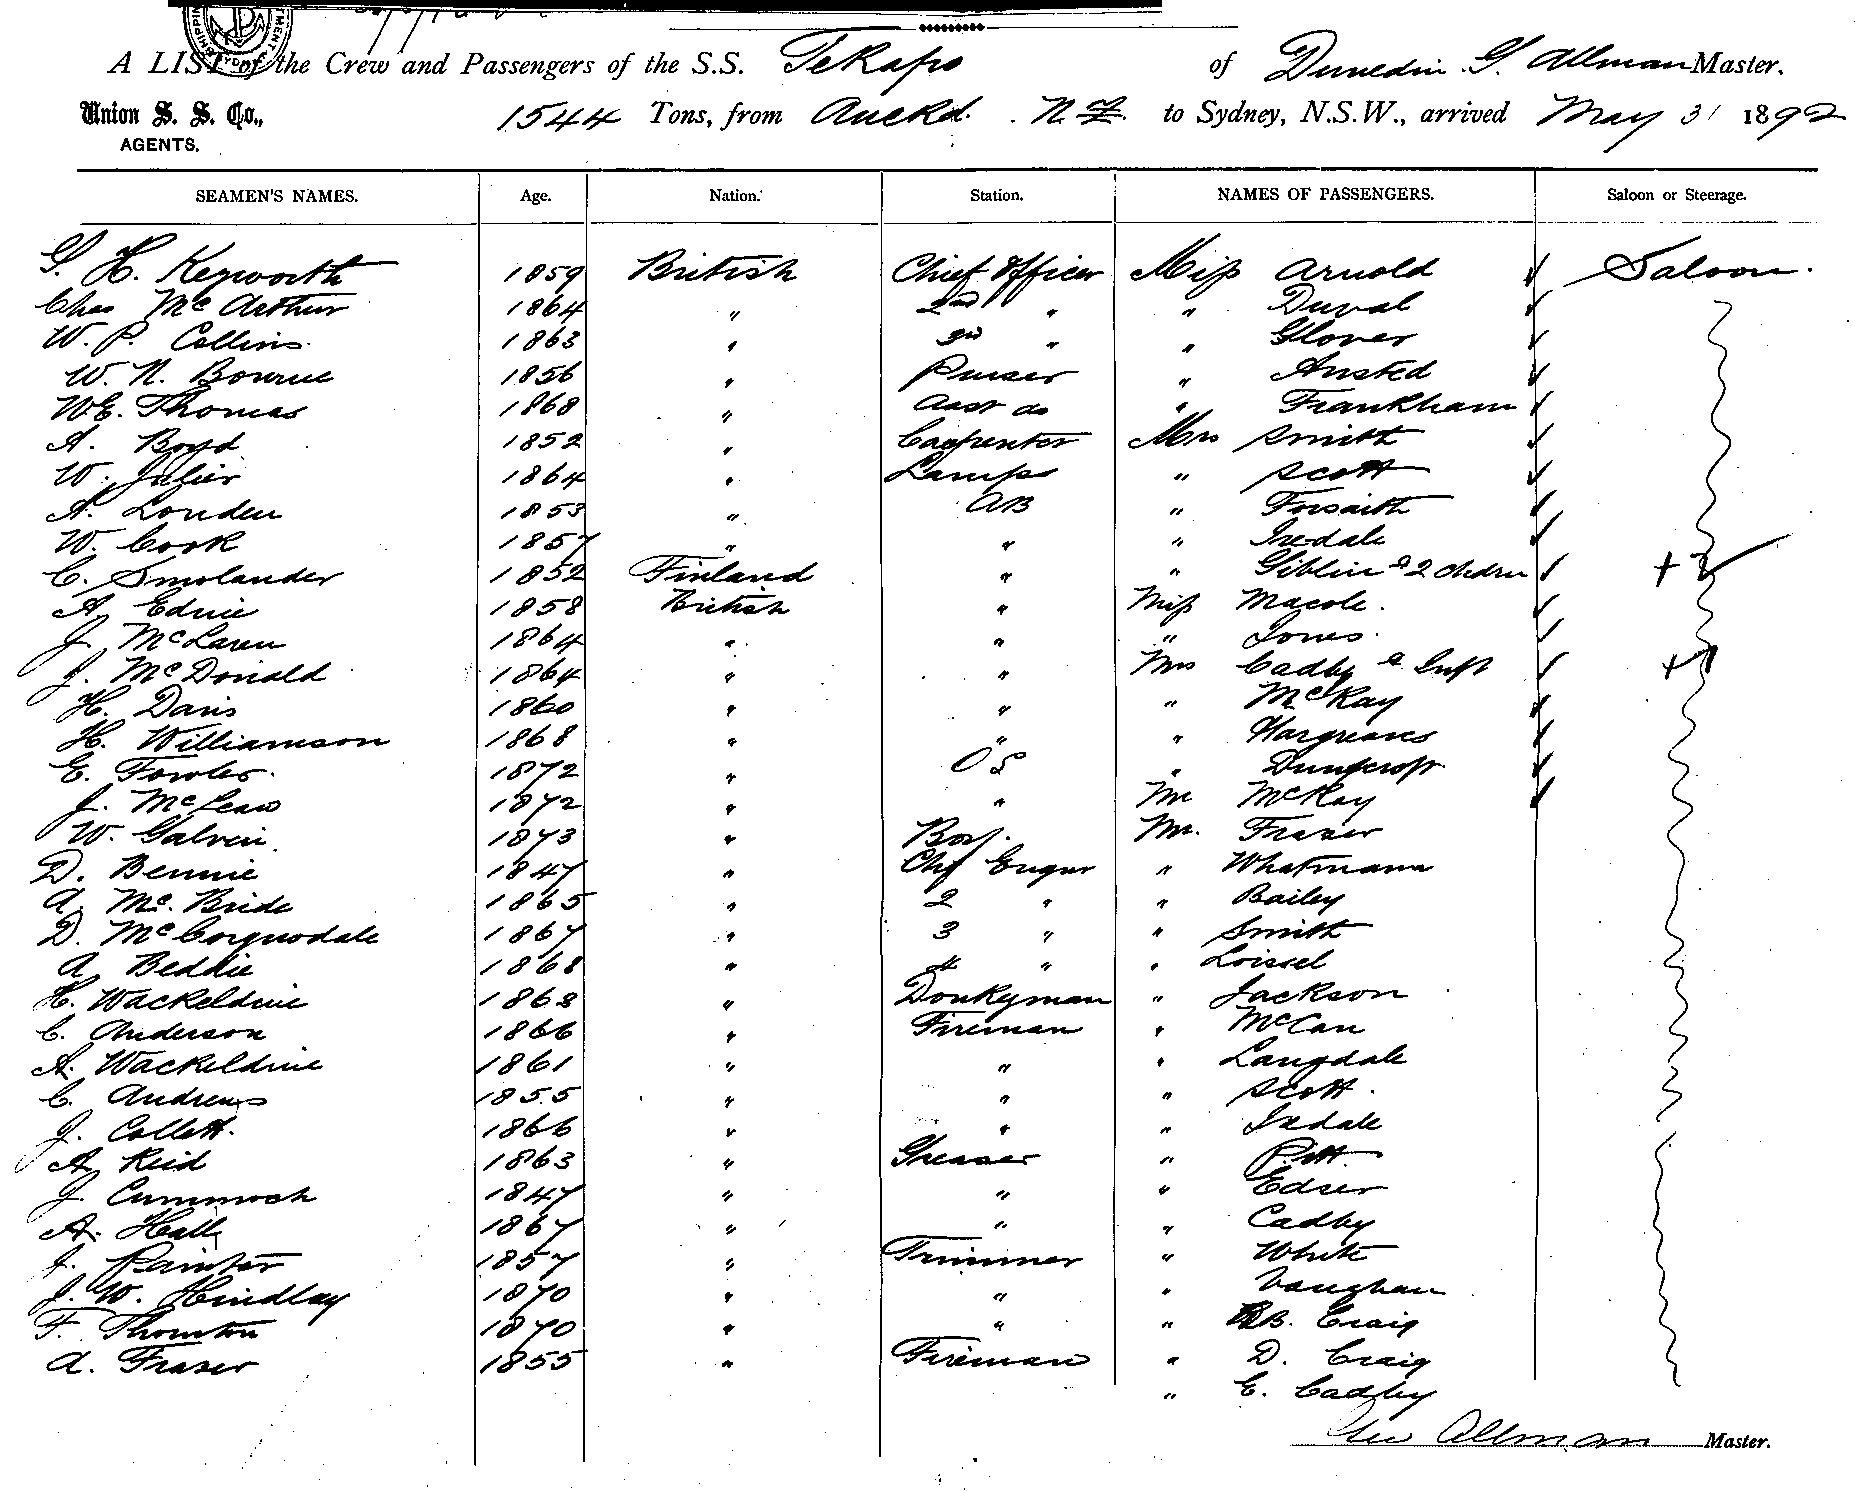 A LIST of the Crew and Passengers of the S.S. Tekapo of Dunedin G. Allman Master.
Union S. S. Co., 1544 Tons, from Auckd. N.Z. to Sydney, N.S.W., arrived May 31 1892
AGENTS.
SEAMEN'S NAMES. Age. Nation. Station. NAMES OF PASSENGERS. Saloon or Steerage.
G. H. Kepworth 1859 British Chief Officer Miss Arnold Saloon.
Chas McArthur 1864 " 2nd " " Duval
W. P. Collins 1863 " 3rd " " Glover
W. N. Bourne 1856 " Purser " Ansted
W.E. Thomas 1868 " Asst do " Frankham
A. Boyd 1852 " Carpenter Mrs Smith
W. Julier 1864 " Lamps " Scott
A. Louden 1853 " AB " Forsaith
W. Cook 1857 " " " Iredale
C. Smolander 1852 Finland " " Giblin & 2 chdrn + 2
A. Ednie 1858 British " Miss Macole.
J. McLaren 1864 " " " Jones.
J. McDonald 1864 " " Mrs Cadby & Inft +1
H. Davis 1860 " " " McKay
H. Williamson 1868 " " " Hargreaves
E. Fowler. 1872 " OS "
J. McLean 1872 " " Mr McKay
W. Galvin. 1873 " Boy. Mr. Fraser
D. Bennie 1847 " Chf Engnr " Whatmann
A. Mc.Bride 1865 " 2 " " Bailey
D. McCorquodale 1867 " 3 " " Smith
A Beddie 1868 " 4 " " Loissel
H. Wackeldine 1863 " Donkyman " Jackson
C. Anderson 1866 " Fireman " McCan
A. Wackeldine 1861 " " " Langdale
C. Andrews 1855 " " " Scott.
J. Collett. 1866 " " " Ixdale
A. Reid 1863 " Greaser " Pitt
J. Cummock 1847 " " " Edser
A. Hall 1867 " " " Cadby
J. Painter 1857 " Trimmer " White
J. W. Hindlay 1870 " " " Vaughan
F. Thornton 1870 " " " B. Craig
A. Fraser 1855 " Fireman " D. Craig
" E. Cadby
Geo Allman Master.